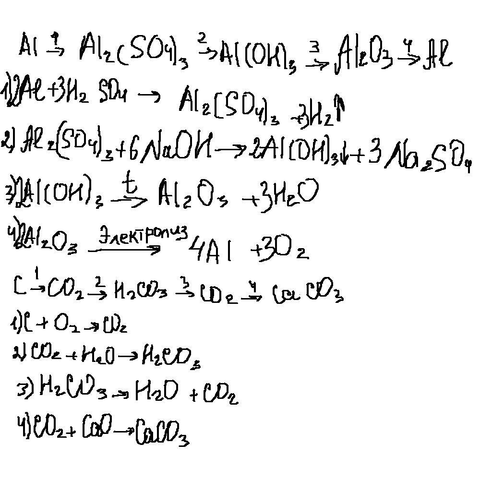 Al →¹ Al₂(SO₄)₃ →² Al(OH)₃ →³ Al₂O₃ →⁴ Al
1) 2Al + 3H₂SO₄ → Al₂(SO₄)₃ + 3H₂↑
2) Al₂(SO₄)₃ + 6NaOH → 2Al(OH)₃↓ + 3Na₂SO₄
3) 2Al(OH)₃ →ᵗ Al₂O₃ + 3H₂O
4) 2Al₂O₃ Электролиз → 4Al + 3O₂
C →¹ CO₂ →² H₂CO₃ →³ CO₂ →⁴ CaCO₃
1) C + O₂ → CO₂
2) CO₂ + H₂O → H₂CO₃
3) H₂CO₃ → H₂O + CO₂
4) CO₂ + CaO → CaCO₃